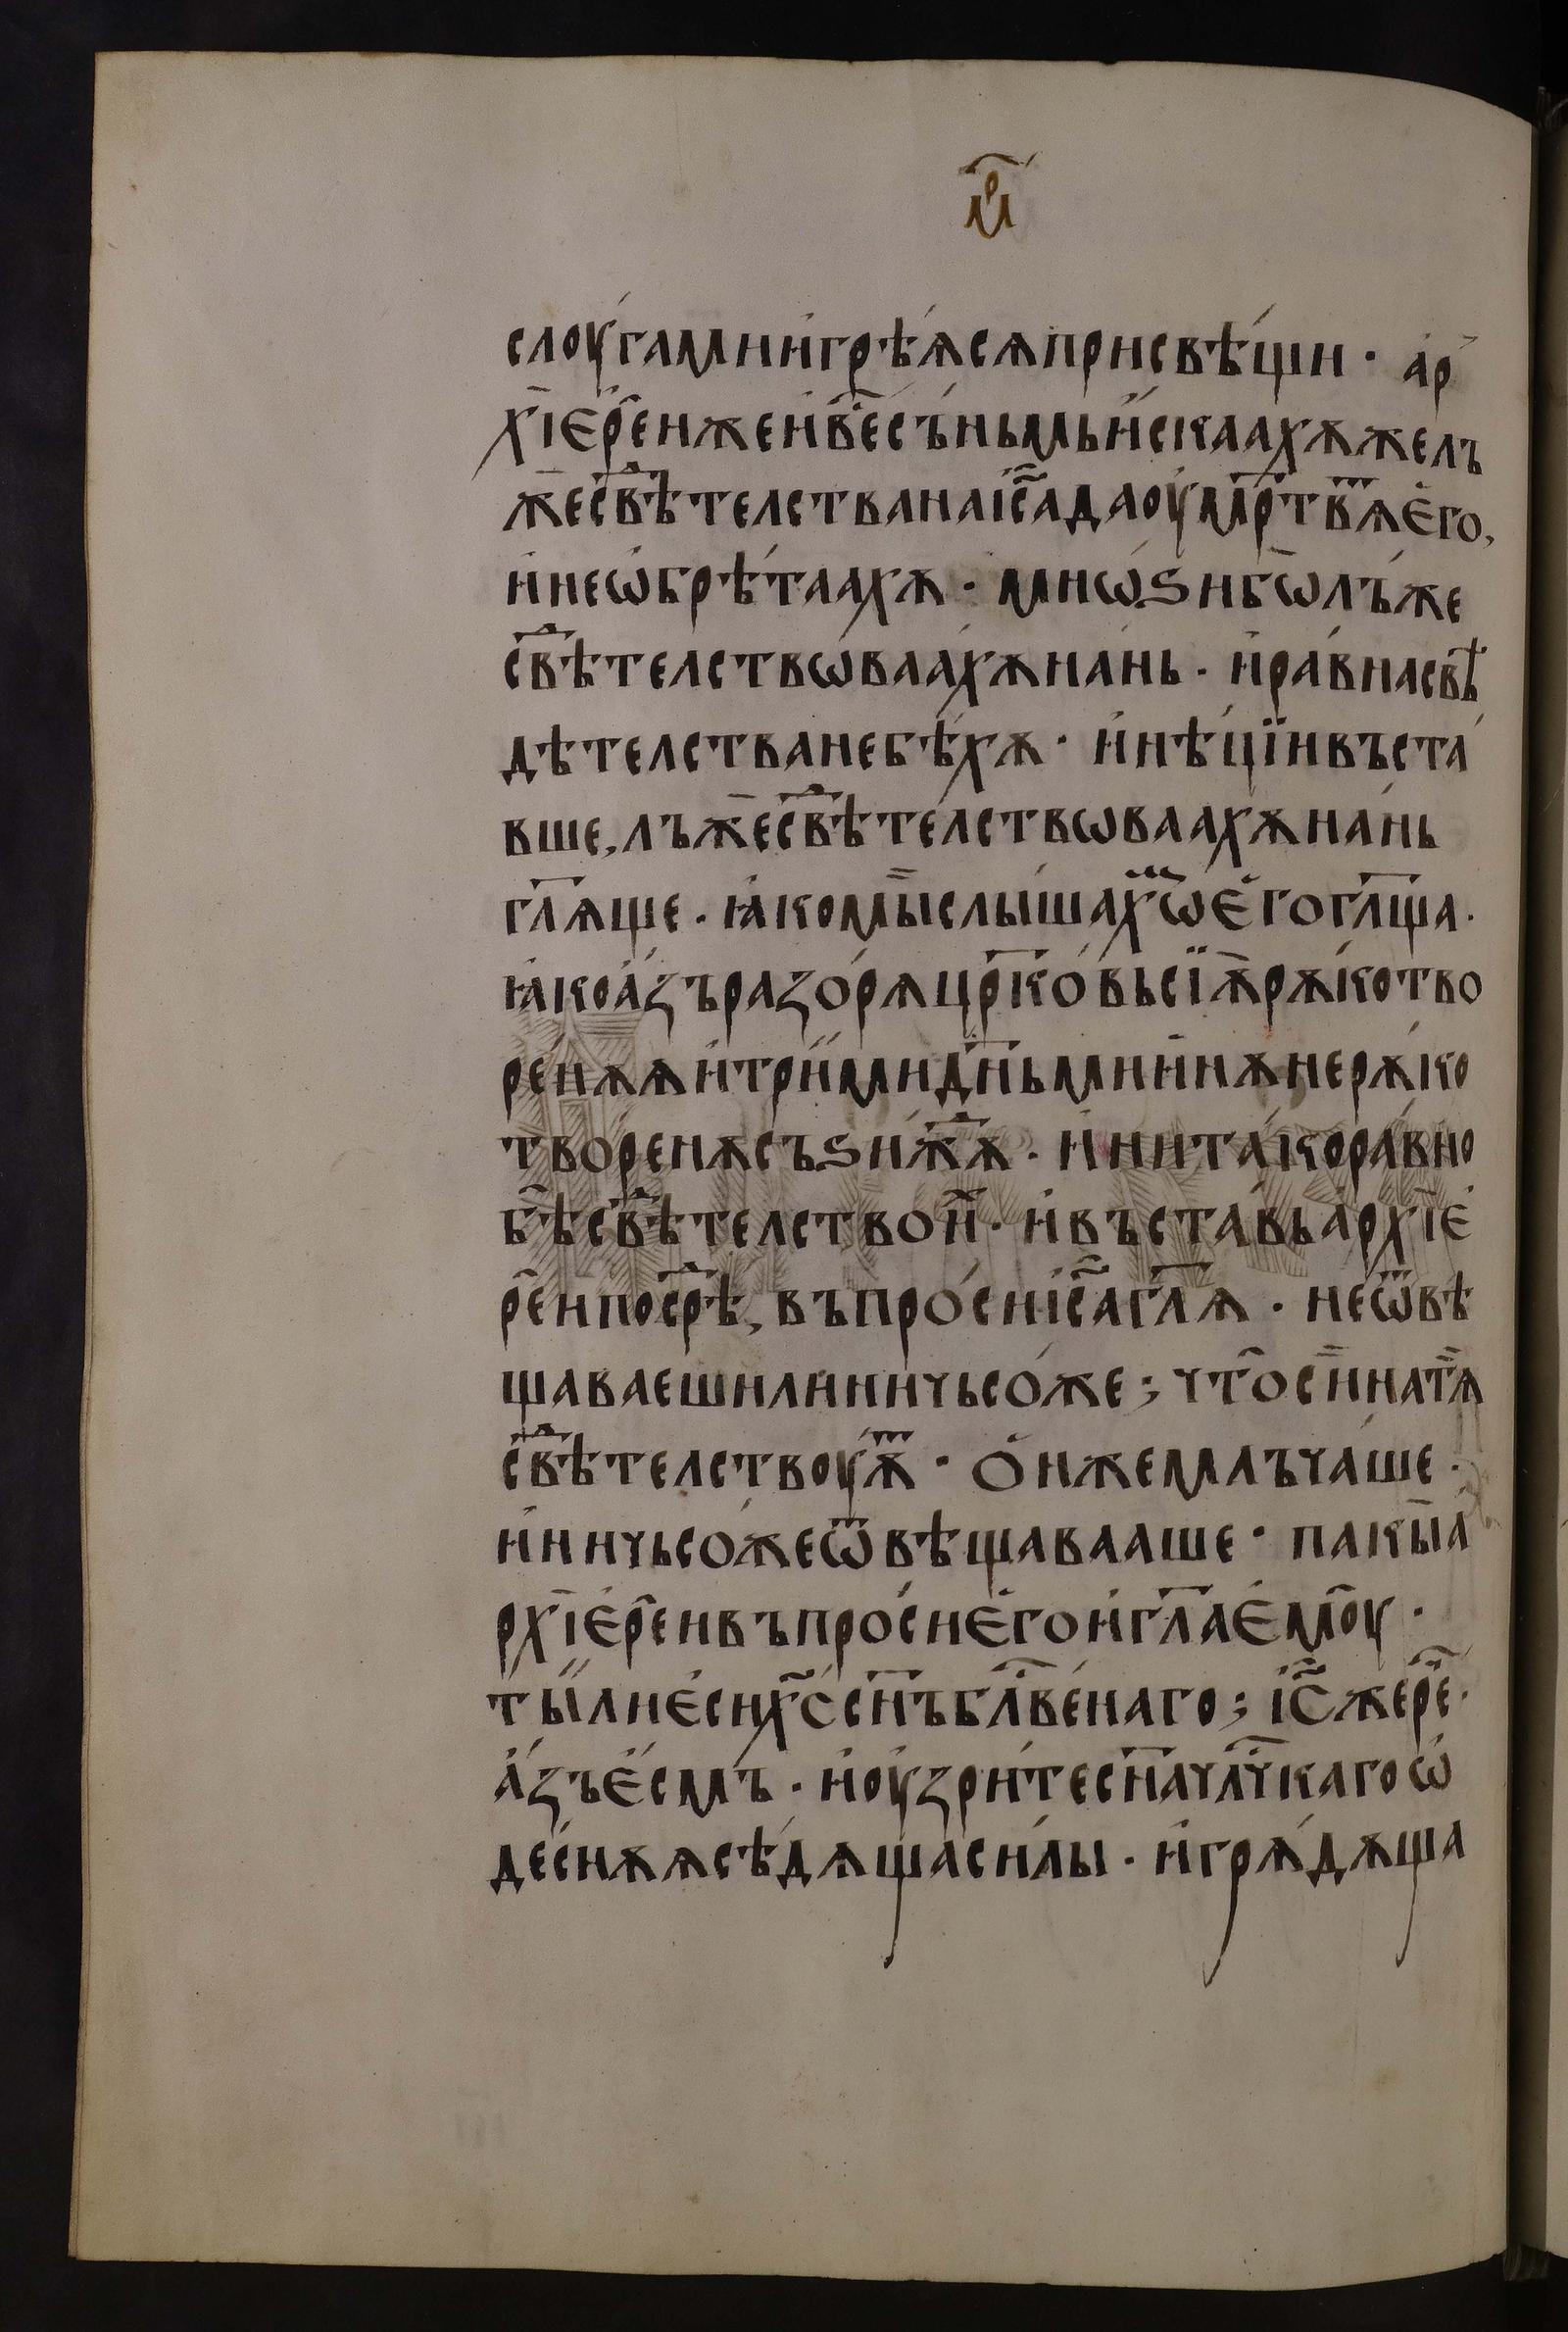 мр҃
слоу́гамиигрѣ́ѧсѧприсвѣ́щи · а҆р
хїе҆ре́ижеи҆ве́съньмьи҆скаахѫжелъ
жесвⷣѣтелстванаі҆с҃адаоу҆мр҃твѧ́тъего̀,
и҆неѡ҆брѣ́таахѫ · мнѡ҆́ѕибѡлъ́же
свⷣѣтелствѡ́ваа́хѫна́нь · и҆ра́внасвѣ
дѣтелстванебѣ́хѫ · и҆нѣ́цїивъста́
вше, лъжесвⷣѣте́лствѡваахѫна́нь
гл҃ѧще · ꙗ҆комы̀слы́шахѡ҆мъе҆гогл҃ща ·
ꙗ҆коа҆́зъразо́рѧцр҃ко́вьсїѫ̀рѫ́котво
ре́нѫѫи҆трїи́мидн҃ьмии҆и́нѫнерѫ́ко
тво́ренѫсъѕи́ждѫ · и҆нита́кора́вно
бѣ̀свⷣѣтелствои҆́хъ · и҆въста́вьа҆рхїе҆
ре́ипосрⷣѣ, въпро́сиі҆с҃агл҃ѧ · неѿвѣ
щаваешилииничьсо́же; что̀сі́инатѧ̀
свⷣѣтелствоу́ѫтъ · О҆́нжемлъча́ше ·
и҆ничьсо́жеѿвѣщавааше · пакы̀а҆
рхїе҆ре́ивъпро́сие҆гои҆гл҃ае҆моу̀ ·
ты́лие҆сих҃ссн҃ъбл҃ве́наго; І҆с҃жерⷱе ·
а҆́зъе҆́смъ · и҆оу҆зри́тесн҃ачл҃чкагоѡ҆
десн́ѫѫсѣ́дѧщаси́лы · и҆грѧ́дѫща